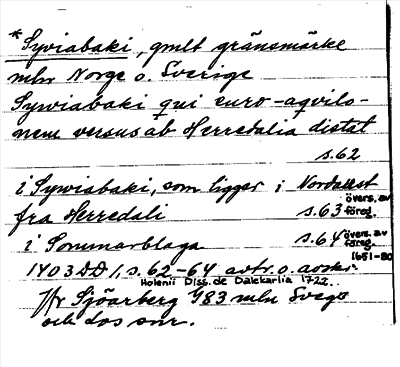 *Syviabaki, gmlt gränsmärke
mln Norge o. Sverige
Sywiabaki qui euro-aqvilo-
nem versus ab Herredalia distat
s.62
i Sywiabaki, som ligger i Nordwest
fra Herredali s.63 övers. av föreg.
i Sommarblaga s.64 övers. av föreg.
1651-80
1703 DD 1, s. 62-64 avtr. o. avskr.
Holenii Diss. de Dalekarlia 1722.
Sjöarberg 983 mln Svege
och dos snr.